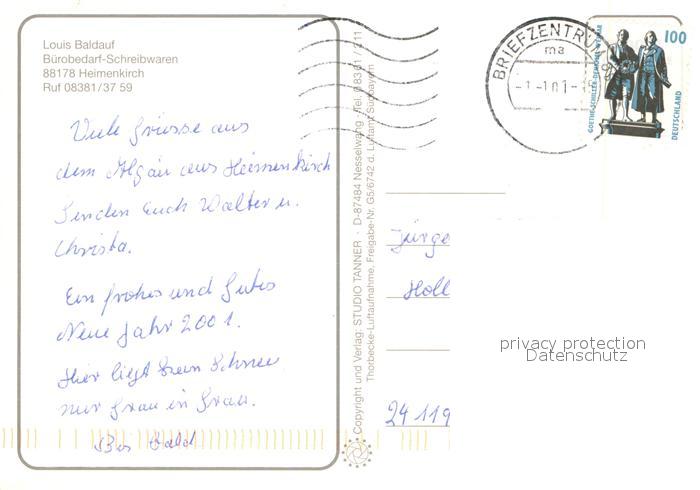 Louis Baldauf
Bürobedarf-Schreibwaren
88178 Heimenkirch
Ruf 08381/37 59
Viele Grüsse aus
dem Algäu aus Heimenkirch
Senden Euch Walter u.
Christa.
Ein frohes und Gutes
Neue Jahr 2001.
Hier liegt kein Schnee
nur Grau in Grau.
Bis bald
Copyright und Verlag: STUDIO TANNER · D-87484 Nesselwang · Tel. 0 83 61 /
Thorbecke-Luftaufnahme, Freigabe-Nr. G5/6742 d. Luftamt Südbayern
BRIEFZENTRUM
ma
-1-1.01-
100
GOETHE-SCHILLER-DENKMAL WEIMAR
DEUTSCHLAND
Jürge
Holl
24 119
privacy protection
Datenschutz